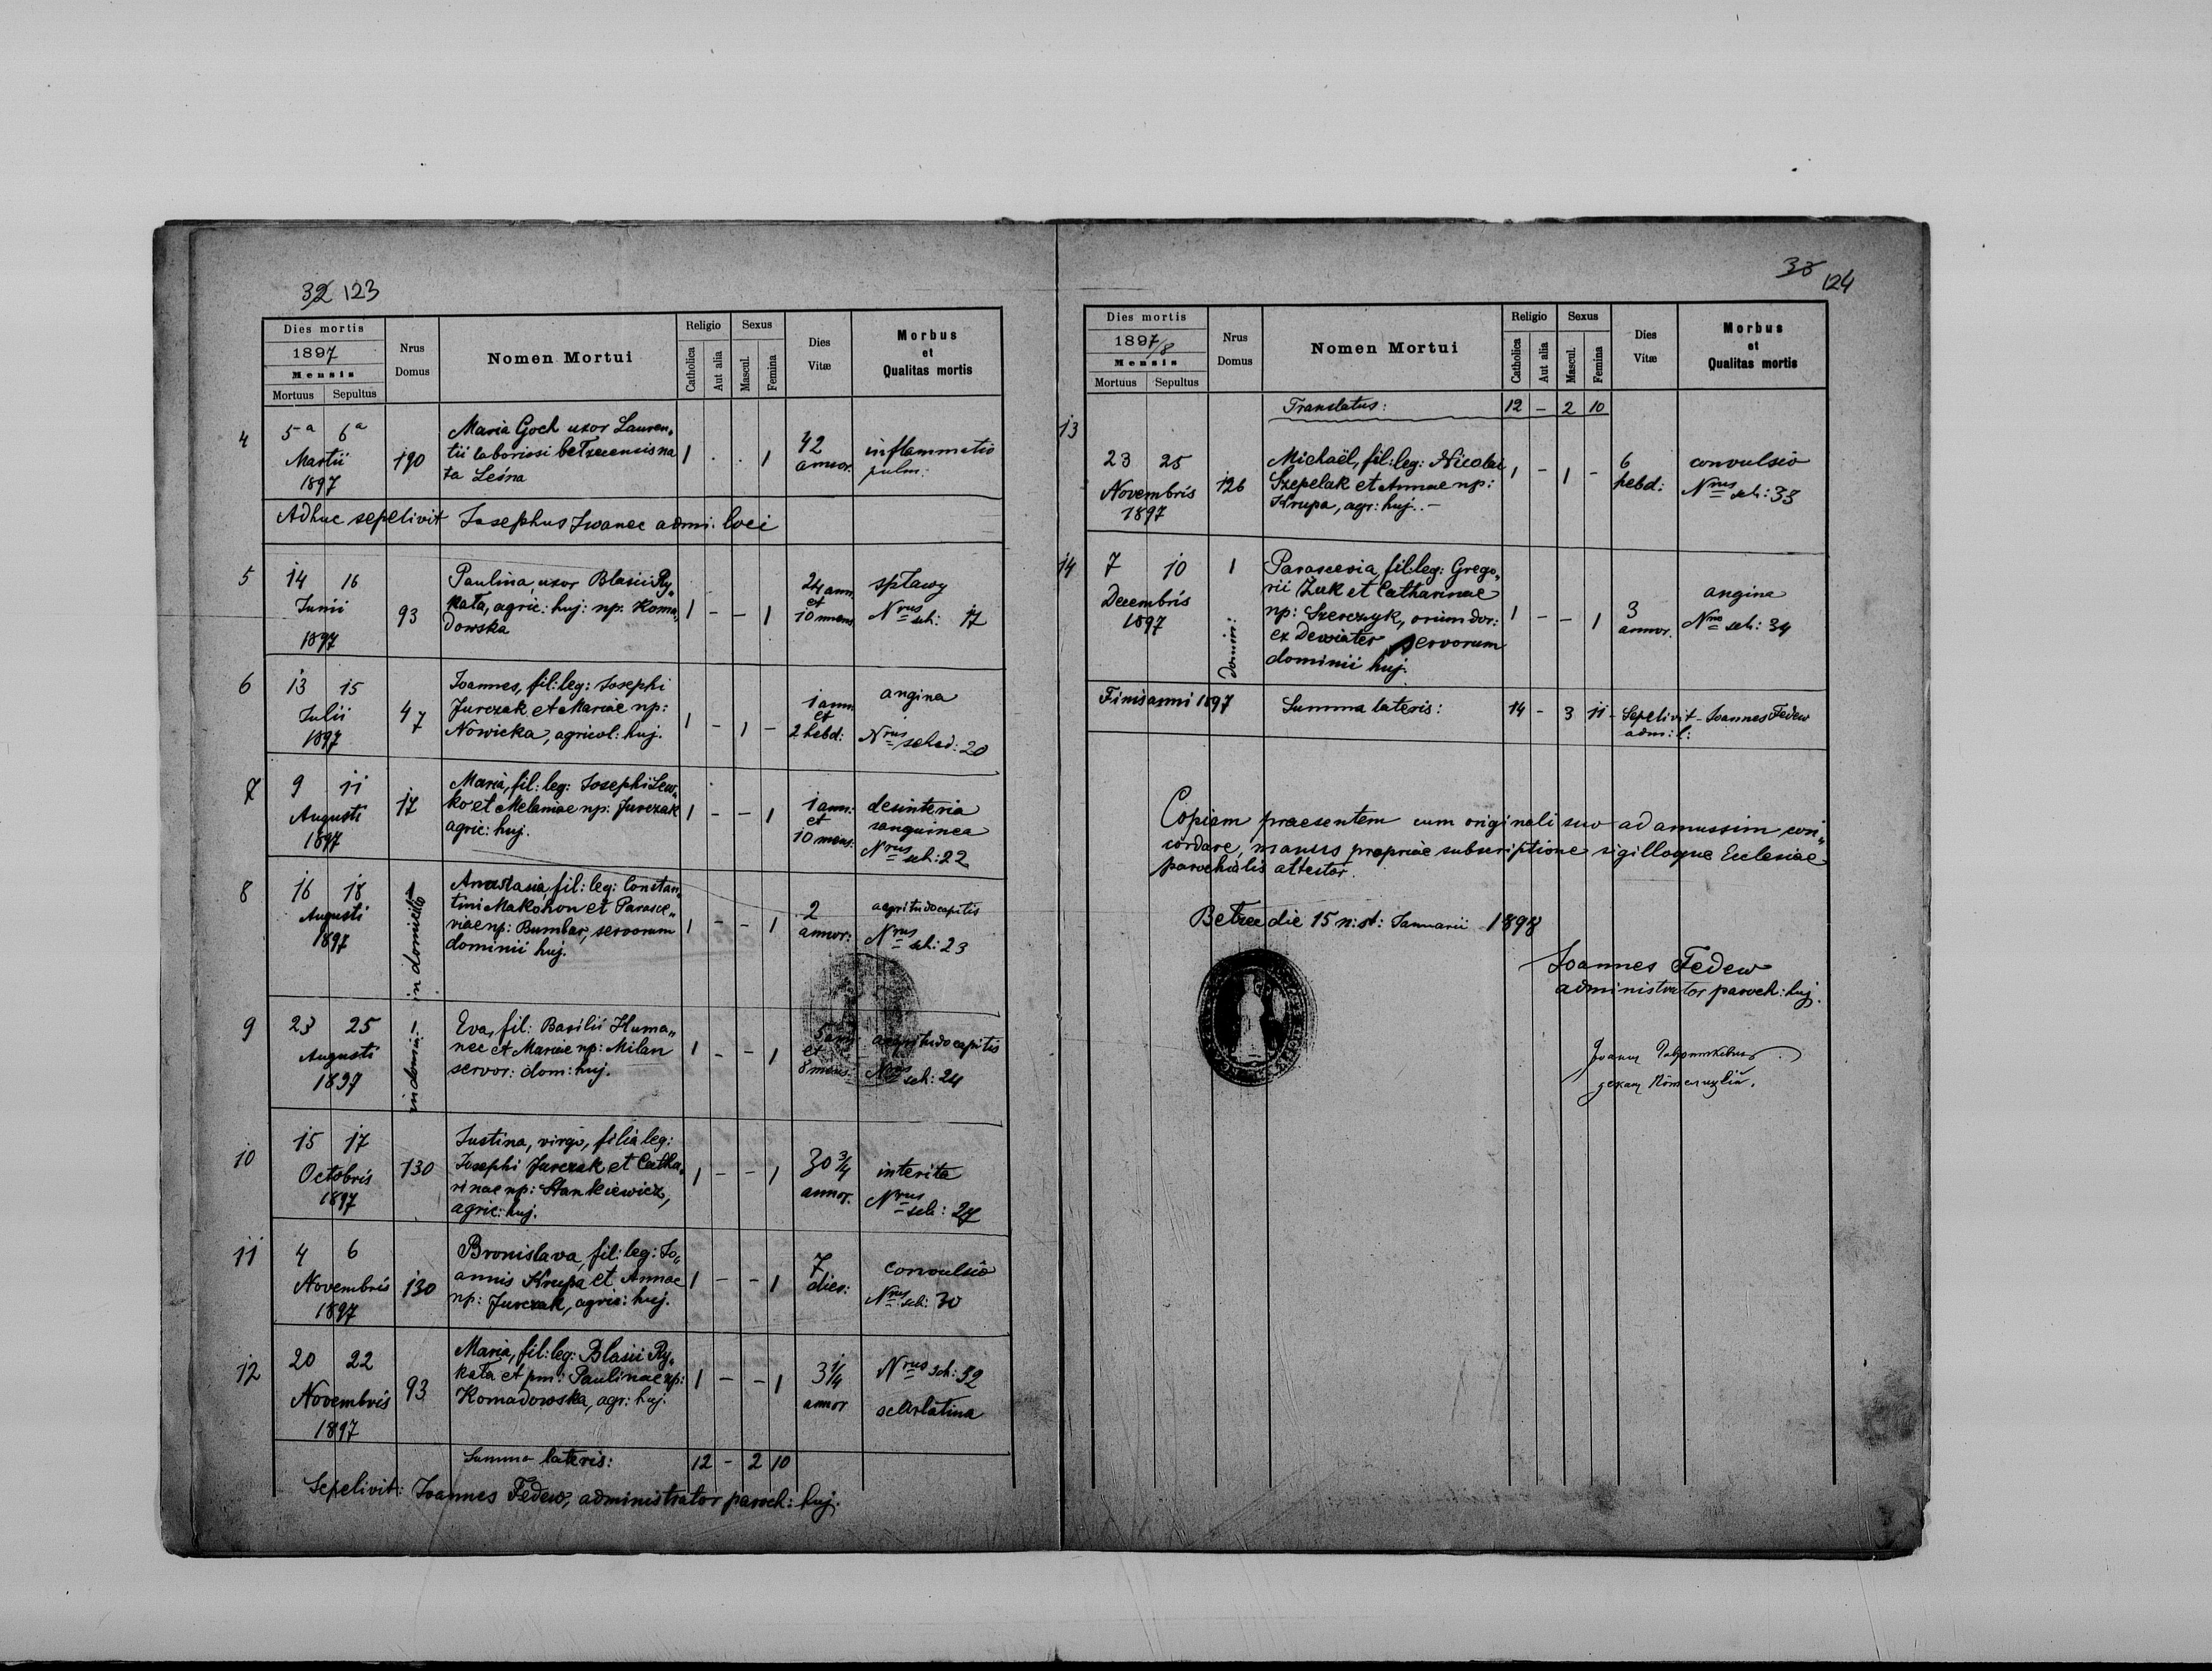 32 123
Dies mortis
1897
Mensis
Mortuus Sepultus
Nrus Domus
Nomen Mortui
Religio
Catholica Aut alia
Sexus
Mascul. Femina
Dies Vitæ
Morbus et Qualitas mortis
4
5a 6a
Martii
1897
190
Maria Goch uxor Lauren„
tii laboriosi bełzecensis na
ta Leśna
1 . . 1
42
annor.
inflammatio
pulm:
Adhuc sepelivit Josephus Iwanec admi: loci
5
14 16
Junii
1897
93
Paulina, uxor Blasii Ry„
kała, agric: huj: np: Koma„
dowska
1 – – 1
24 ann
et
10 mens
spławy
Nrus sch: 17
6
13 15
Julii
1897
47
Joannes, fil: leg: Josephi
Jurczak et Mariae np:
Nowicka, agricol: huj.
1 – 1 –
1 ann
et
2 hebd:
angina
Nrus sched: 20
7
9 11
Augusti
1897
17
Maria, fil: leg: Josephi Lew„
ko et Melaniae np: Jurczak
agric: huj.
1 – – 1
1 ann:
et
10 mens:
desinteria
sanguinea
Nrus sch: 22
8
16 18
Augusti
1897
in domicilio
Anastasia, fil: leg: Constan„
tini Makohon et Parasce„
viae np: Bumbar, servorum
dominii huj.
1 – – 1
2
annor:
aegritudo capitis
Nrus sch: 23
9
23 25
Augusti
1897
in domin:
Eva, fil: Basilii Huma„
nec et Mariae np: Milan
servor: dom: huj.
1 – – 1
5 ann
et
8 mens
aegritudo capitis
Nrus sch: 24
10
15 17
Octobris
1897
130
Justina, virgo, filia leg:
Josephi Jurczak et Catha„
rinae np: Stankiewicz,
agric: huj.
1 – – 1
30 3/4
annor.
interita
Nrus sch: 27
11
4 6
Novembris
1897
130
Bronislava, fil: leg: Jo„
annis Krupa et Annae
np: Jurczak, agric: huj.
1 – – 1
7
dies:
convulsio
Nrus sch: 30
12
20 22
Novembris
1897
93
Maria, fil: leg: Blasii Ry„
kała et pm: Paulinae np:
Komadowska, agr: huj.
1 – – 1
3 1/4
annor
Nrus sch: 32
scarlatina
Summa lateris: 12 – 2 10
Sepelivit: Joannes Fedew, administrator paroch: huj.
33 124
Dies mortis
1897/8
Mensis
Mortuus Sepultus
Nrus Domus
Nomen Mortui
Religio
Catholica Aut alia
Sexus
Mascul. Femina
Dies Vitæ
Morbus et Qualitas mortis
Translatus: 12 – 2 10
13
23 25
Novembris
1897
126
Michaël, fil: leg: Nicolai
Szepelak et Annae np:
Krupa, agr: huj. –
1 – 1 –
6
hebd:
convulsio
Nrus sch: 33
14
7 10
Decembris
1897
1
domin:
Parascevia, fil: leg: Grego„
rii Żuk et Catharinae
np: Szerczyk, oriundor:
ex Dewiater servorum
dominii huj.
1 – – 1
3
annor.
angina
Nrus sch: 34
Finis anni 1897 Summa lateris: 14 – 3 11 – Sepelivit – Joannes Fedew
adm: l:
Copiam praesentem cum originali suo ad amussim con„
cordare, manus propriae subscriptione sigilloque Ecclesiae
parochialis attestor.
Bełzec die 15 n: st: Januarii 1898
Joannes Fedew
administrator paroch: huj.